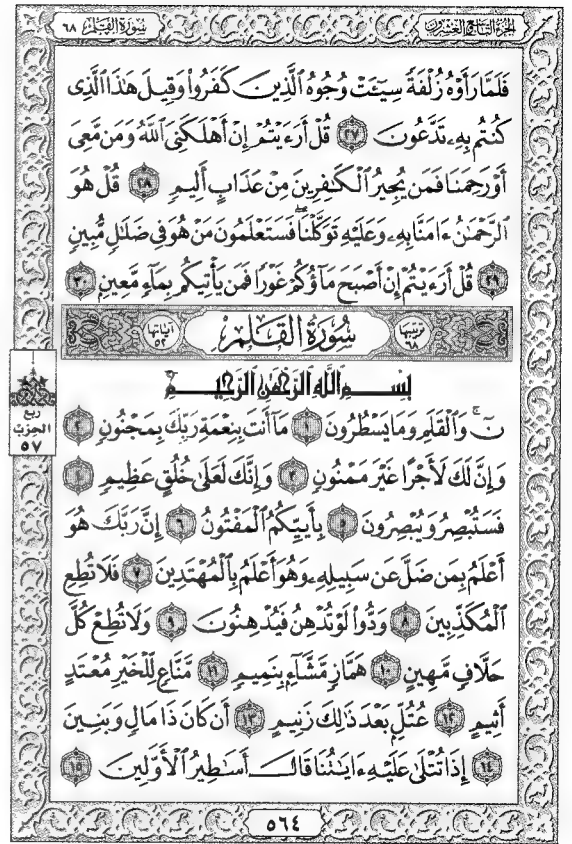 سُورَةُ القَلَمِ ٦٨
الجزءُ التَّاسِعُ وَالعِشْرُونَ
فَلَمَّا رَأَوۡهُ زُلۡفَةٗ سِيٓـَٔتۡ وُجُوهُ ٱلَّذِينَ كَفَرُواْ وَقِيلَ هَٰذَا ٱلَّذِي
كُنتُم بِهِۦ تَدَّعُونَ ٢٧ قُلۡ أَرَءَيۡتُمۡ إِنۡ أَهۡلَكَنِيَ ٱللَّهُ وَمَن مَّعِيَ
أَوۡ رَحِمَنَا فَمَن يُجِيرُ ٱلۡكَٰفِرِينَ مِنۡ عَذَابٍ أَلِيمٖ ٢٨ قُلۡ هُوَ
ٱلرَّحۡمَٰنُ ءَامَنَّا بِهِۦ وَعَلَيۡهِ تَوَكَّلۡنَاۖ فَسَتَعۡلَمُونَ مَنۡ هُوَ فِي ضَلَٰلٖ مُّبِينٖ
٢٩ قُلۡ أَرَءَيۡتُمۡ إِنۡ أَصۡبَحَ مَآؤُكُمۡ غَوۡرٗا فَمَن يَأۡتِيكُم بِمَآءٖ مَّعِينِۭ ٣٠
ترتيبها ٦٨ سُورَةُ القَلَمِ آياتها ٥٢
بِسۡمِ ٱللَّهِ ٱلرَّحۡمَٰنِ ٱلرَّحِيمِ
نٓۚ وَٱلۡقَلَمِ وَمَا يَسۡطُرُونَ ١ مَآ أَنتَ بِنِعۡمَةِ رَبِّكَ بِمَجۡنُونٖ ٢
وَإِنَّ لَكَ لَأَجۡرًا غَيۡرَ مَمۡنُونٖ ٣ وَإِنَّكَ لَعَلَىٰ خُلُقٍ عَظِيمٖ ٤
فَسَتُبۡصِرُ وَيُبۡصِرُونَ ٥ بِأَييِّكُمُ ٱلۡمَفۡتُونُ ٦ إِنَّ رَبَّكَ هُوَ
أَعۡلَمُ بِمَن ضَلَّ عَن سَبِيلِهِۦ وَهُوَ أَعۡلَمُ بِٱلۡمُهۡتَدِينَ ٧ فَلَا تُطِعِ
ٱلۡمُكَذِّبِينَ ٨ وَدُّواْ لَوۡ تُدۡهِنُ فَيُدۡهِنُونَ ٩ وَلَا تُطِعۡ كُلَّ
حَلَّافٖ مَّهِينٍ ١٠ هَمَّازٖ مَّشَّآءِۭ بِنَمِيمٖ ١١ مَّنَّاعٖ لِّلۡخَيۡرِ مُعۡتَدٍ
أَثِيمٍ ١٢ عُتُلِّۭ بَعۡدَ ذَٰلِكَ زَنِيمٍ ١٣ أَن كَانَ ذَا مَالٖ وَبَنِينَ
١٤ إِذَا تُتۡلَىٰ عَلَيۡهِ ءَايَٰتُنَا قَالَ أَسَٰطِيرُ ٱلۡأَوَّلِينَ ١٥
ربع
الحزب
٥٧
٥٦٤